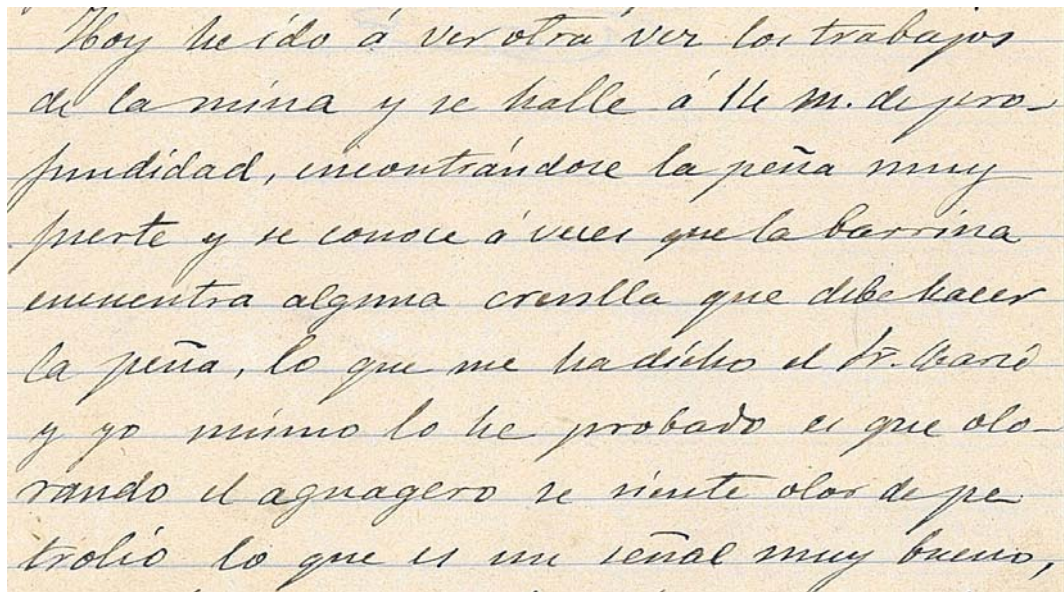 Hoy he ido á ver otra vez los trabajos
de la mina y se halle á 14 m. de pro-
fundidad, encontrándose la peña muy
fuerte y se conoce á veces que la barrina
encuentra alguna crenslla que debe hacer
la peña, lo que me ha dicho el Sr. Marié
y yo mismo lo he probado es que olo-
rando el aguagero se siente olor de pe
trolio lo que es un señal muy bueno,